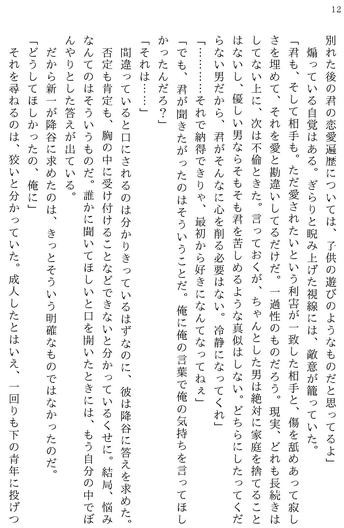 12
別れた後の君の恋愛遍歴については、子供の遊びのようなものだと思ってるよ」
煽っている自覚はある。ぎらりと睨み上げた視線には、敵意が籠っていた。
「君も、そして相手も。ただ愛されたいという利害が一致した相手と、傷を舐めあって寂し
さを埋めて、それを愛と勘違いしてるだけだ。一過性のものだろう。現実、どれも長続きは
してない上に、次は不倫ときた。言っておくが、ちゃんとした男は絶対に家庭を捨てること
はないし、優しい男ならそもそも君を苦しめるような真似はしない。どちらにしたってくだ
らない男だから、君がそんなに心を削る必要はない。冷静になってくれ」
「…………それで納得できりゃ、最初から好きになんてなってねぇ」
「でも、君が聞きたがったのはそういうことだ。俺に俺の言葉で俺の気持ちを言ってほし
かったんだろ？」
「それは……」
間違っていると口にされるのは分かりきっているはずなのに、彼は降谷に答えを求めた。
否定も肯定も、胸の中に受け付けることなどできないと分かっているくせに。結局、悩み
なんてのはそういうものだ。誰かに聞いてほしいと口を開いたときには、もう自分の中でぼ
んやりとした答えが出ている。
だから新一が降谷に求めたのは、きっとそういう明確なものではなかったのだ。
「どうしてほしかったの、俺に」
それを尋ねるのは、狡いと分かっていた。成人したとはいえ、一回りも下の青年に投げつ